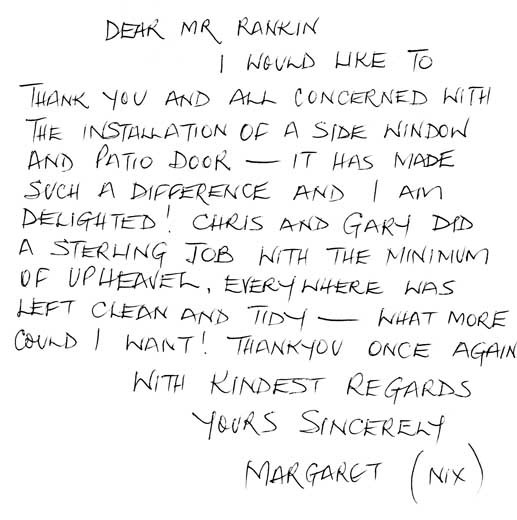 DEAR MR RANKIN
I WOULD LIKE TO
THANK YOU AND ALL CONCERNED WITH
THE INSTALLATION OF A SIDE WINDOW
AND PATIO DOOR — IT HAS MADE
SUCH A DIFFERENCE AND I AM
DELIGHTED! CHRIS AND GARY DID
A STERLING JOB WITH THE MINIMUM
OF UPHEAVEL, EVERYWHERE WAS
LEFT CLEAN AND TIDY — WHAT MORE
COULD I WANT! THANKYOU ONCE AGAIN
WITH KINDEST REGARDS
YOURS SINCERELY
MARGARET (NIX)